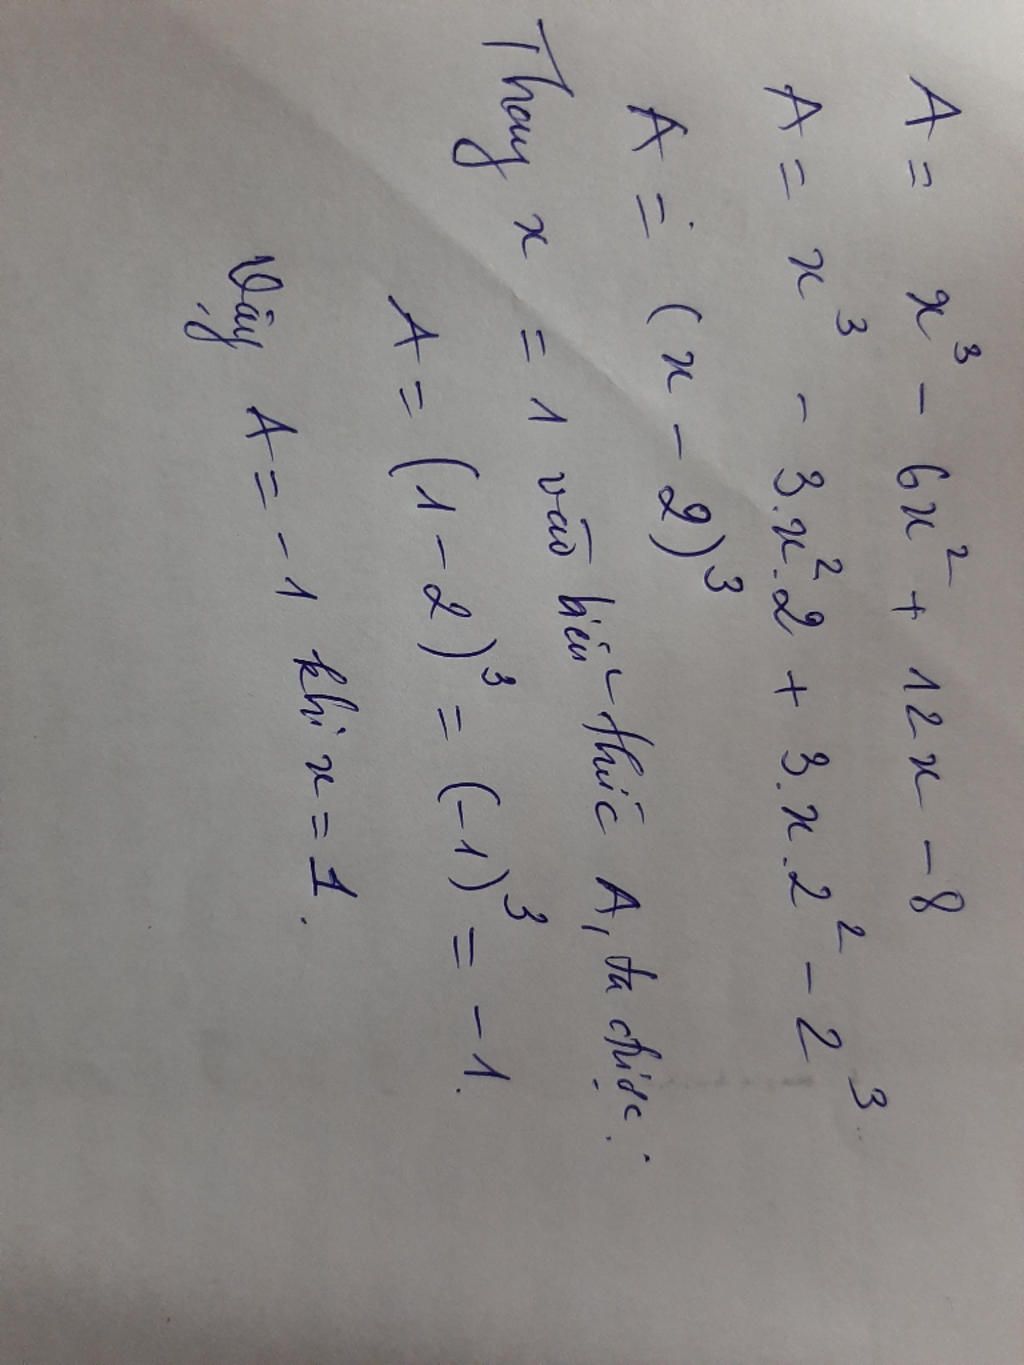 A = x³ - 6x² + 12x - 8
A = x³ - 3.x².2 + 3.x.2² - 2³
A = (x - 2)³
Thay x = 1 vào biểu thức A, ta được:
A = (1 - 2)³ = (-1)³ = -1.
Vậy A = -1 khi x = 1.